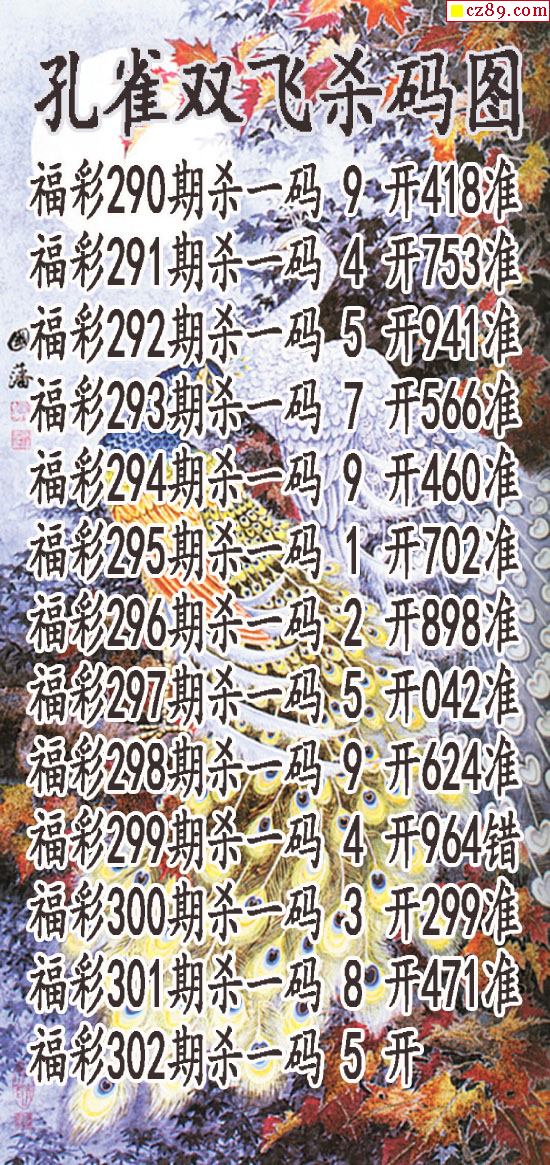 cz89.com
孔雀双飞杀码图
福彩290期杀一码 9 开418准
福彩291期杀一码 4 开753准
福彩292期杀一码 5 开941准
福彩293期杀一码 7 开566准
國藩
福彩294期杀一码 9 开460准
福彩295期杀一码 1 开702准
福彩296期杀一码 2 开898准
福彩297期杀一码 5 开042准
福彩298期杀一码 9 开624准
福彩299期杀一码 4 开964错
福彩300期杀一码 3 开299准
福彩301期杀一码 8 开471准
福彩302期杀一码 5 开